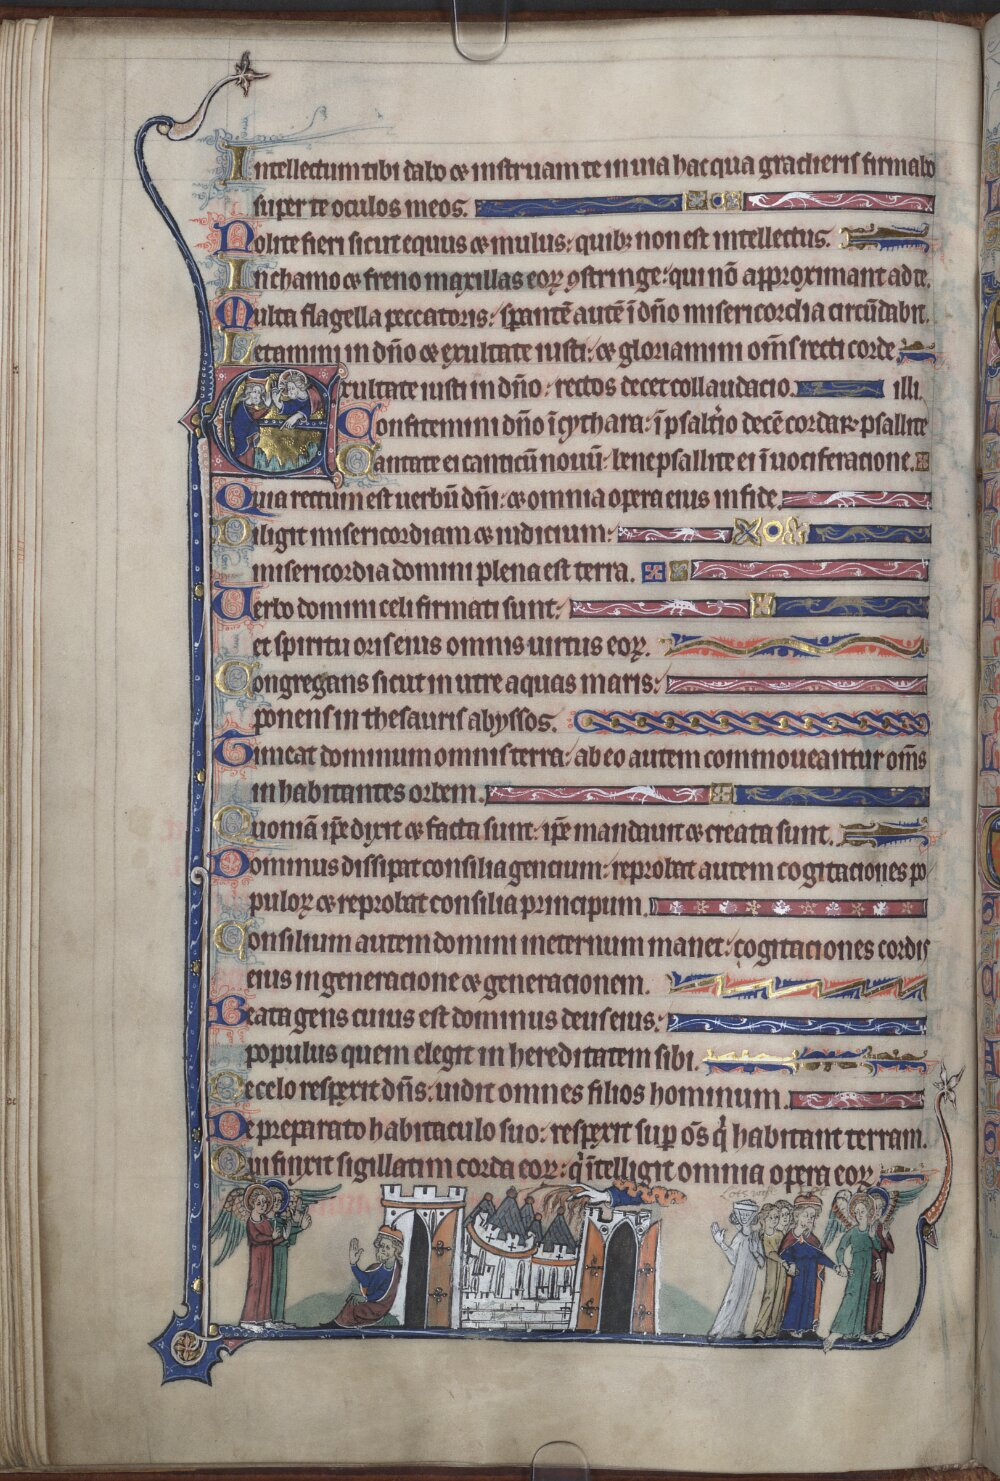 Intellectum tibi dabo ⁊ instruam te in uia hac qua gradieris firmabo
super te oculos meos.
Nolite fieri sicut equus ⁊ mulus: quibꝫ non est intellectus.
In chamo ⁊ freno maxillas eoꝝ ꝯstringe: qui nō approximant ad te.
Multa flagella peccatoris: spantē autē ī dn̄o misericordia circūdabit.
Letamini in dn̄o ⁊ exultate iusti: ⁊ gloriamini om̄s recti corde.
Exultate iusti in dn̄o: rectos decet collaudacio. illi.
Confitemini dn̄o ī cythara: ī psalt'io decē cordaꝝ psallite
Cantate ei canticū nouū: bene psallite ei ī uociferacione.
Quia rectum est uerbū dn̄i: ⁊ omnia opera eius in fide.
Diligit misericordiam ⁊ iudicium:
misericordia domini plena est terra.
Uerbo domini celi firmati sunt:
et spiritu oris eius omnis uirtus eoꝝ.
Congregans sicut in utre aquas maris:
ponens in thesauris abyssos.
Timeat dominum omnis terra: ab eo autem commoueantur om̄s
inhabitantes orbem.
Quoniā ip̄e dixit ⁊ facta sunt: ip̄e mandauit ⁊ creata sunt.
Dominus dissipat consilia gencium: reprobat autem cogitaciones po
puloꝝ ⁊ reprobat consilia principum.
Consilium autem domini in eternum manet: cogitaciones cordis
eius in generacione ⁊ generacionem.
Beata gens cuius est dominus deus eius:
populus quem elegit in hereditatem sibi.
De celo respexit dn̄s: uidit omnes filios hominum.
De preparato habitaculo suo: respexit sup om̄s q̇ habitant terram.
Qui finxit sigillatim corda eoꝝ: q̇ ītelligit omnia opera eoꝝ.
Lotts wefe